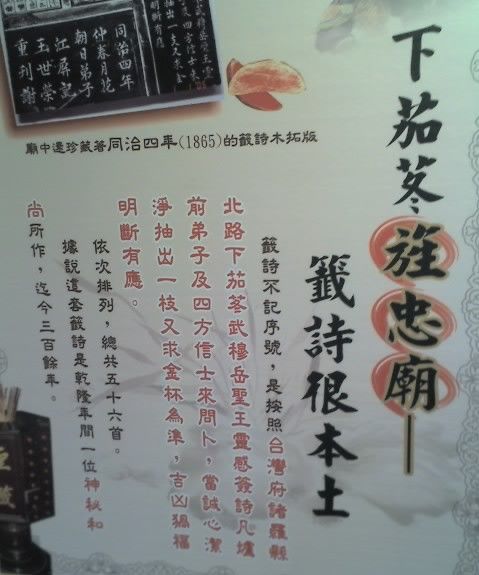 下茄苳旌忠廟—
籤詩很本土
籤詩不記序號，是按照台灣府諸羅縣
北路下茄苳武穆岳聖王靈感簽詩凡爐
前弟子及四方信士來問卜，當誠心潔
淨抽出一枝又求金杯為準，吉凶禍福
明斷有應。
依次排列，總共五十六首。
據說這套籤詩是乾隆年間一位神秘和
尚所作，迄今三百餘年。
明斷有應
同治四年
仲春月花
朝日弟子
江屏記
王世榮
重刊謝
廟中還珍藏著同治四年(1865)的籤詩木拓版